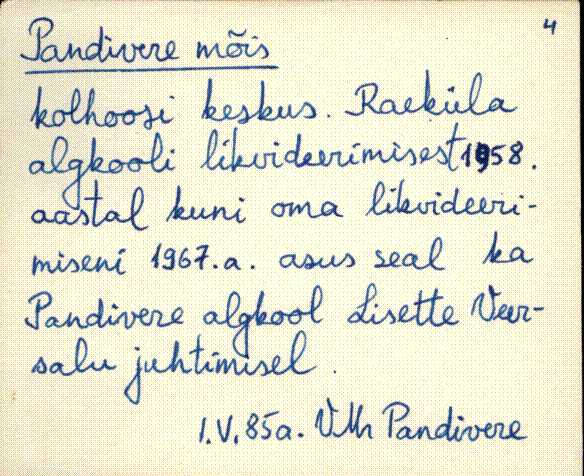 4
Pandivere mõis
kolhoosi keskus. Raeküla
algkooli likvideerimisest 1958.
aastal kuni oma likvideeri-
miseni 1967.a. asus seal ka
Pandivere algkool Lisette Veer-
salu juhtimisel.
1.V.85a. VMh Pandivere